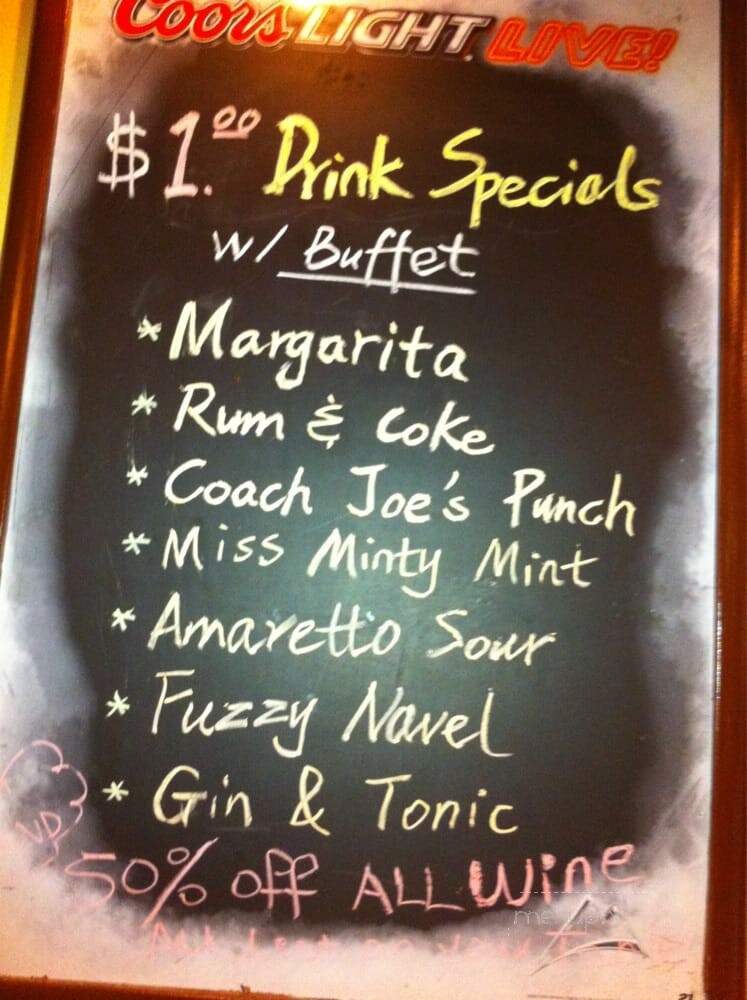 Coors LIGHT LIVE!
$1.00 Drink Specials
w/ Buffet
* Margarita
* Rum & Coke
* Coach Joe's Punch
* Miss Minty Mint
* Amaretto Sour
* Fuzzy Navel
* Gin & Tonic
UP
50% Off ALL Wine
me up